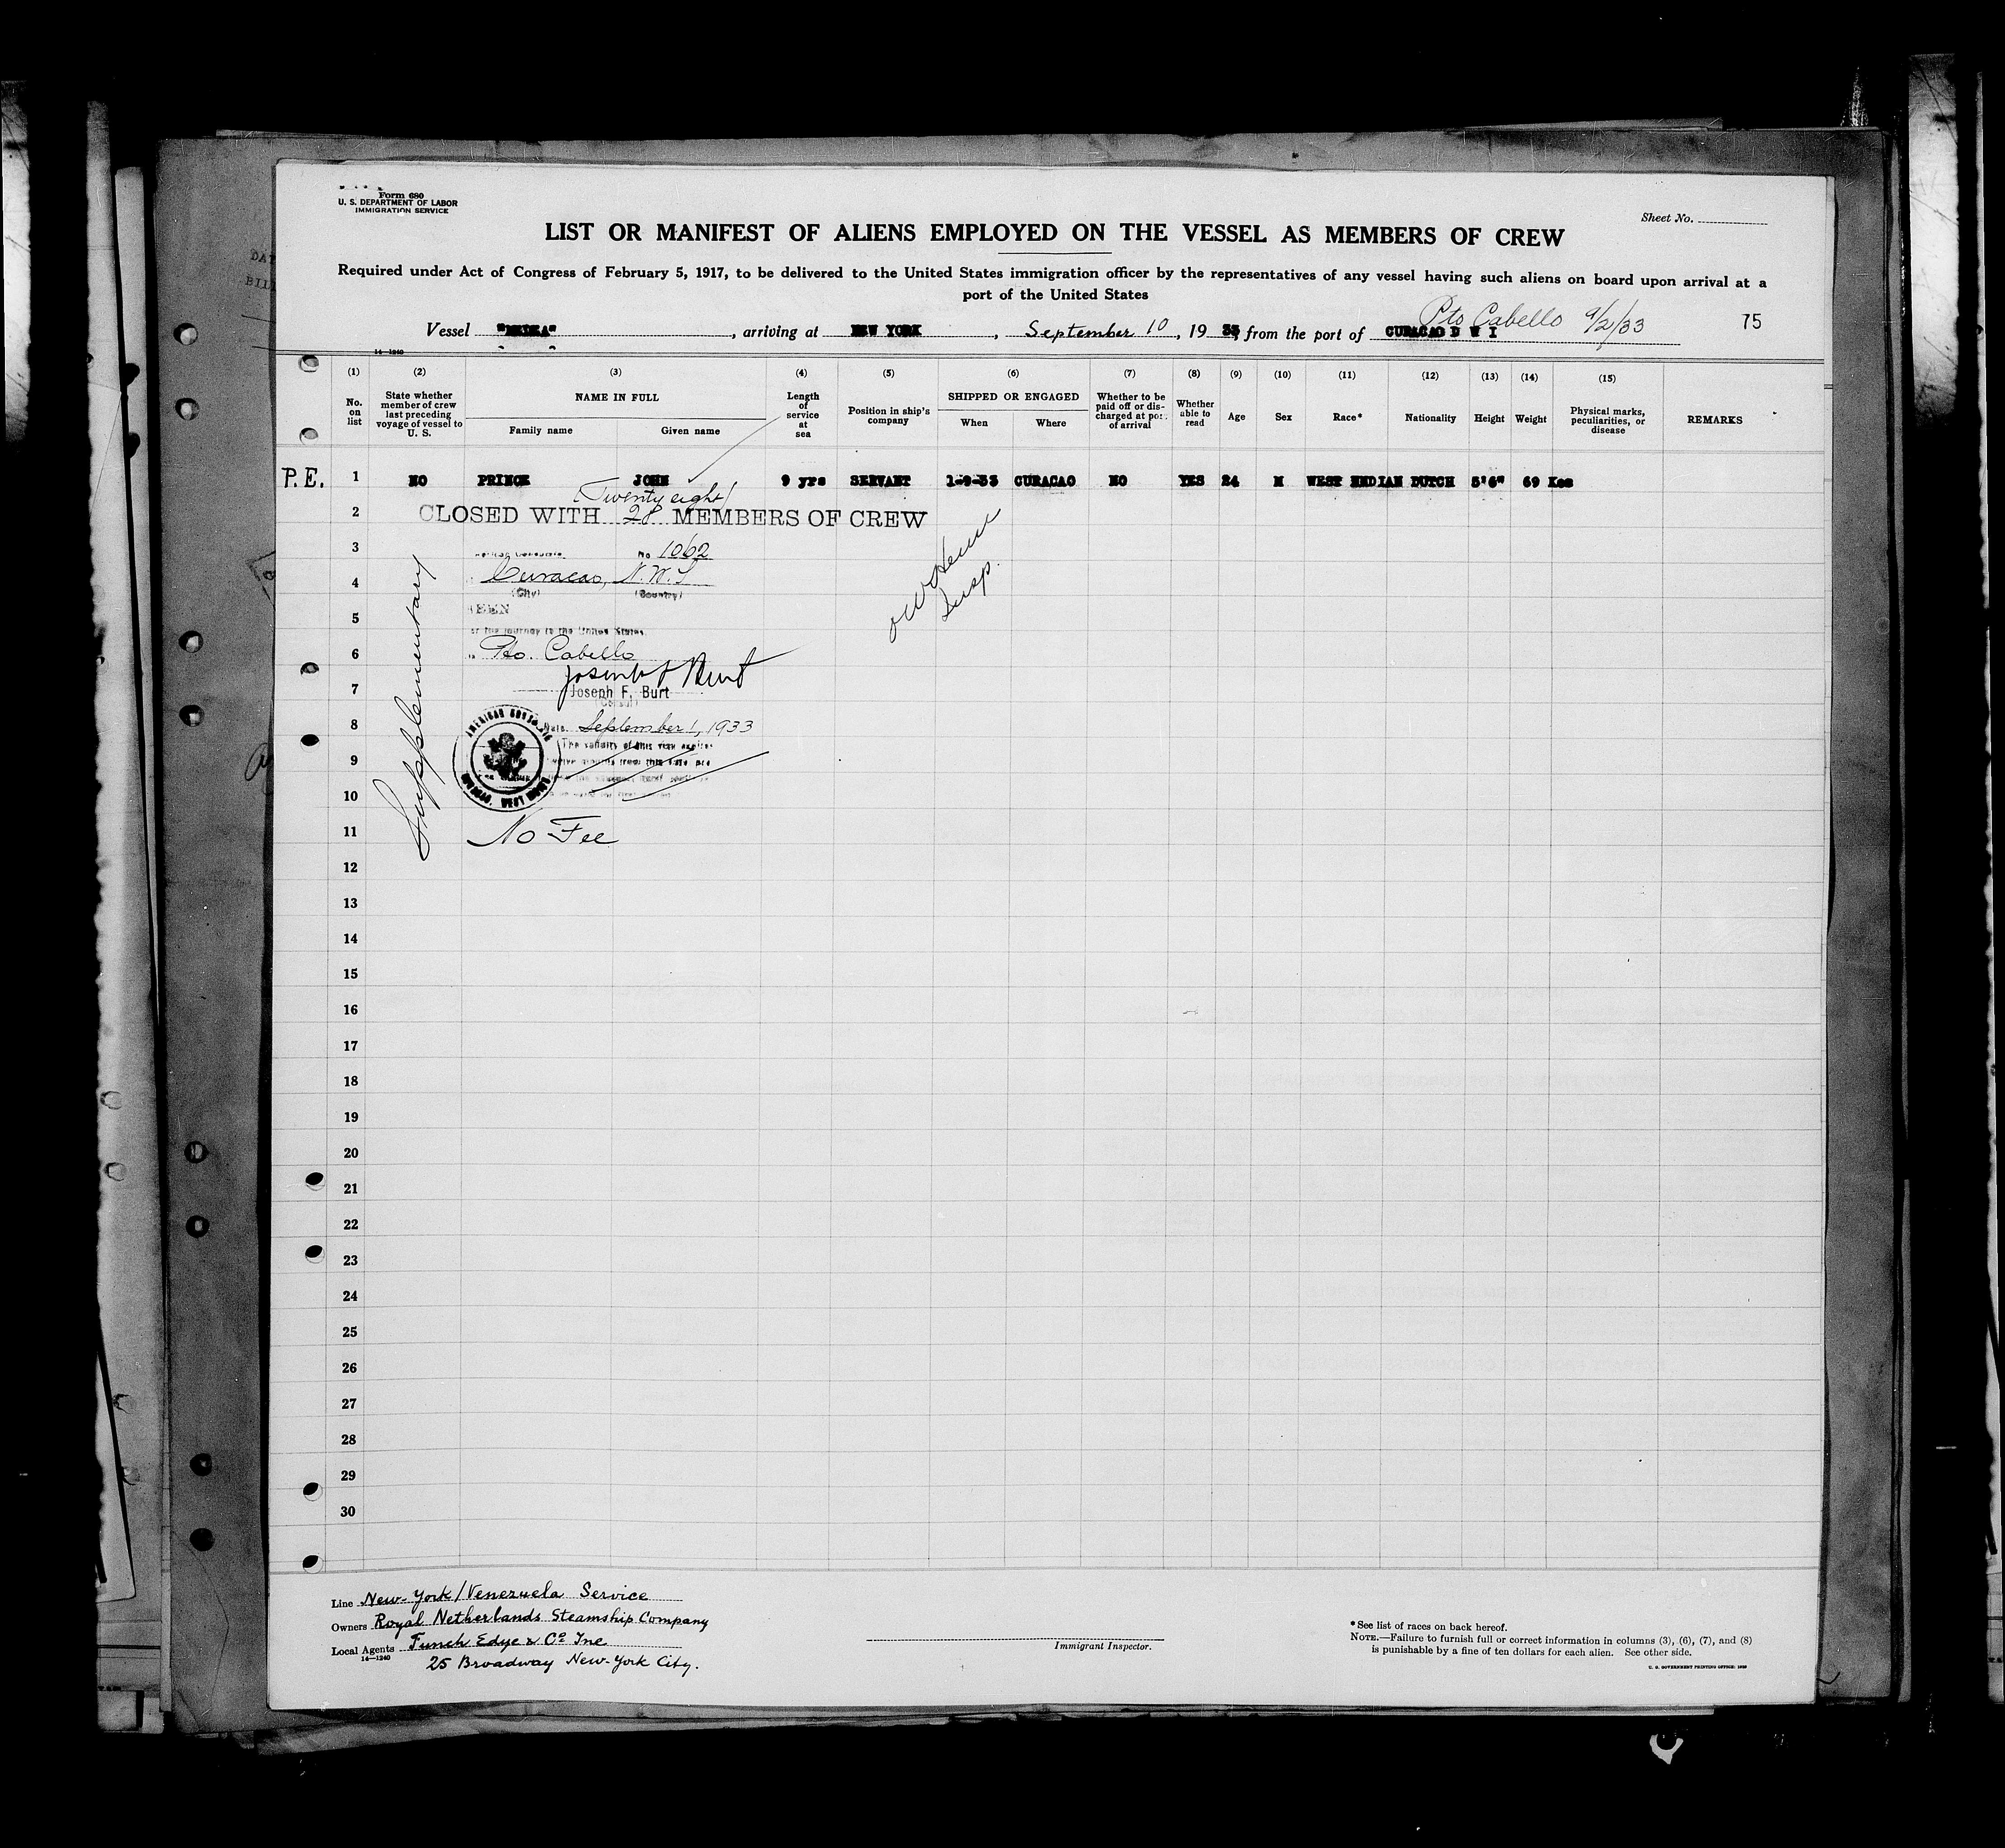 Form 680
U. S. DEPARTMENT OF LABOR
IMMIGRATION SERVICE
Sheet No.
LIST OR MANIFEST OF ALIENS EMPLOYED ON THE VESSEL AS MEMBERS OF CREW
Required under Act of Congress of February 5, 1917, to be delivered to the United States immigration officer by the representatives of any vessel having such aliens on board upon arrival at a
port of the United States
Pto Cabello 9/2/33
Vessel , arriving at NEW YORK , September 10, 19 33, from the port of CURACAO D W I
75
14—1240
(1) (2) (3) (4) (5) (6) (7) (8) (9) (10) (11) (12) (13) (14) (15)
No. on list
State whether member of crew last preceding voyage of vessel to U. S.
NAME IN FULL
Family name Given name
Length of service at sea
Position in ship's company
SHIPPED OR ENGAGED
When Where
Whether to be paid off or discharged at port of arrival
Whether able to read
Age
Sex
Race*
Nationality
Height
Weight
Physical marks, peculiarities, or disease
REMARKS
P.E. 1 NO PRINCE JOHN 9 yrs SERVANT 1-9-33 CURACAO NO YES 24 M WEST INDIAN DUTCH 5'6" 69 Kos
(Twenty eight)
2 CLOSED WITH 28 MEMBERS OF CREW
3 No 1062
4 Curacao, N.W.I
(City) (Country)
5
or the journey to the United States.
6 Pto. Cabello
Joseph F Burt
7 Joseph F. Burt
(Consul)
8 Date September 1, 1933
AMERICAN CONSULATE
CURACAO, WEST INDIES
9
10
11 No Fee
Supplementary
Insp.
12
13
14
15
16
17
18
19
20
21
22
23
24
25
26
27
28
29
30
Line New-York/Venezuela Service
Owners Royal Netherlands Steamship Company
Local Agents Funch Edye & Co Inc
14—1240
25 Broadway New-York City.
Immigrant Inspector.
* See list of races on back hereof.
NOTE.—Failure to furnish full or correct information in columns (3), (6), (7), and (8)
is punishable by a fine of ten dollars for each alien. See other side.